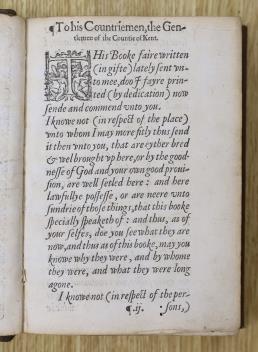 ¶To his Countriemen, the Gen-
tlemen of the Countie of Kent.
THis Booke faire written
(in gifte) lately sent vn-
to mee, doo I fayre prin-
ted (by dedication) now
sende and commend vnto you.
I knowe not (in respect of the place)
vnto whom I may more fitly thus send
it then vnto you, that are eyther bred
& wel brought vp here, or by the good-
nesse of God and your own good proui-
sion, are well setled here: and here
lawfullye possesse, or are neere vnto
sundrie of those things, that this booke
specially speaketh of: and thus, as of
your selfes, doe you see what they are
now, and thus as of this booke, may you
knowe why they were, and by whome
they were, and what they were long
agone.
I knowe not (in respect of the per-
¶.ij. sons,)